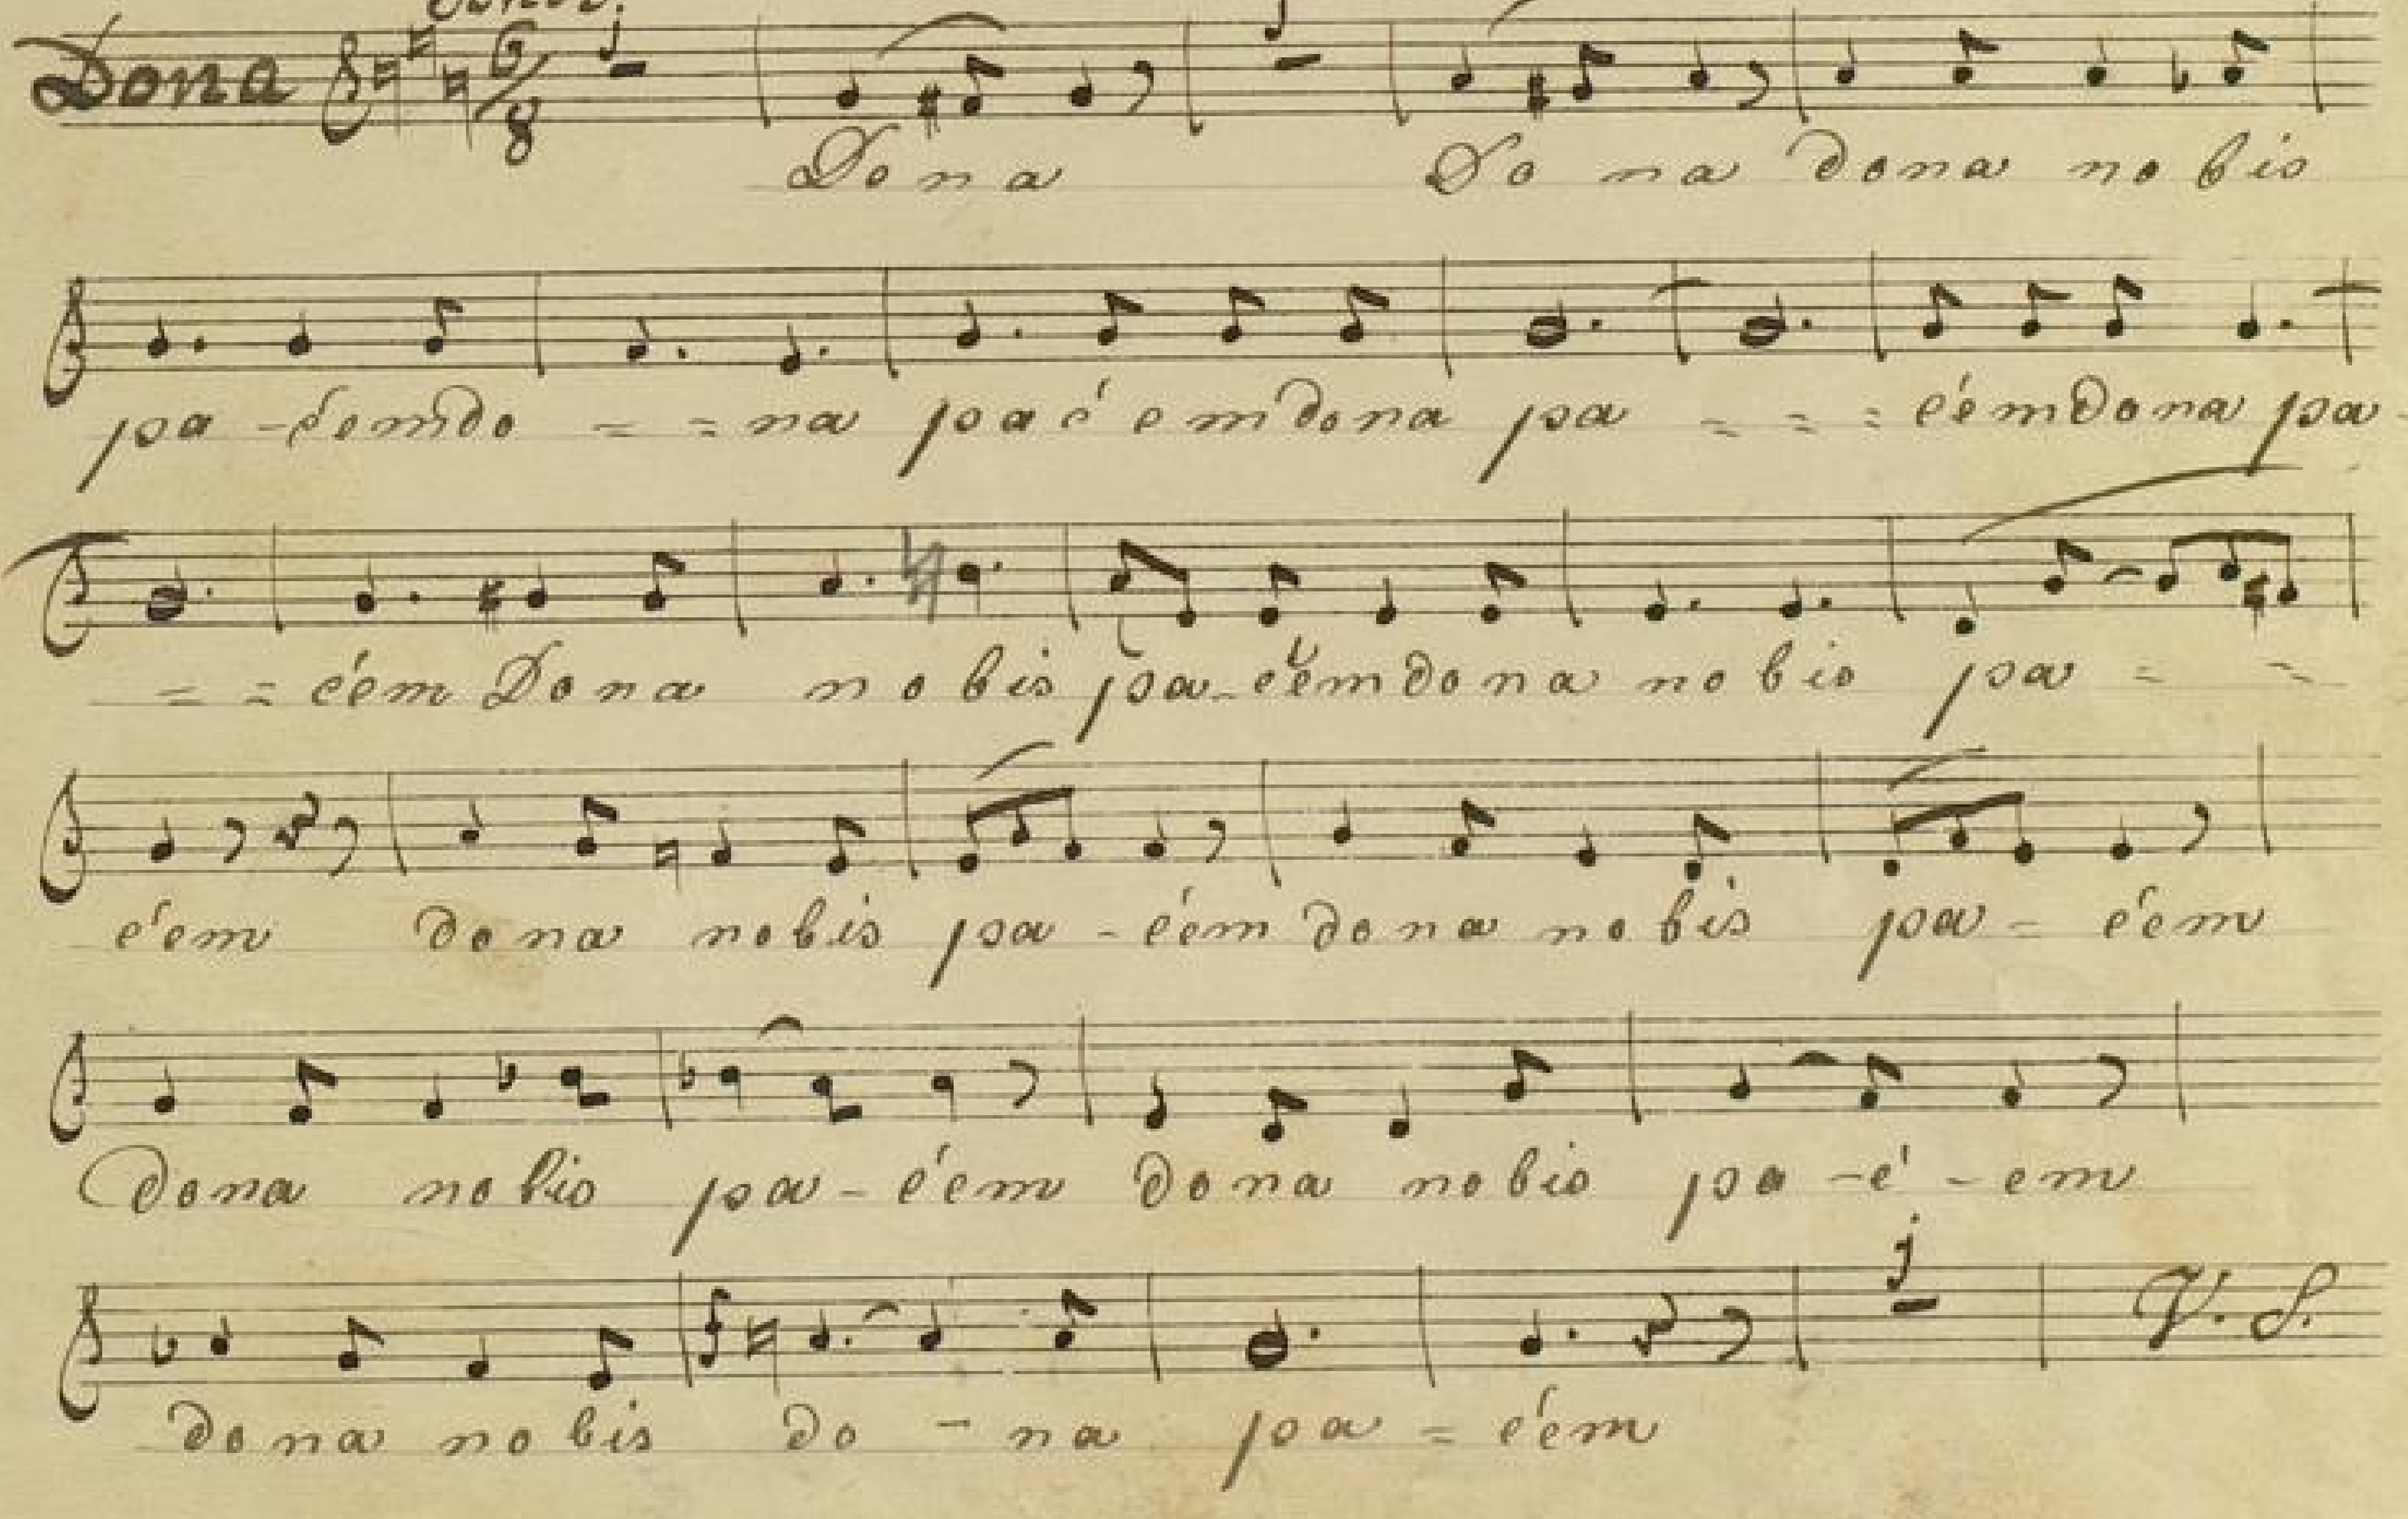 Dona 6/8
Dona Dona dona nobis
pa-éemdo = = na paéemdona pa = = = éemdona pa-
= = éem Dona nobis pa-éemdona nobis pa = =
éem dona nobis pa-éem dona nobis pa= éem
Dona nobis pa-éem dona nobis pa-é-em
dona nobis do - na pa = éem
V. S.